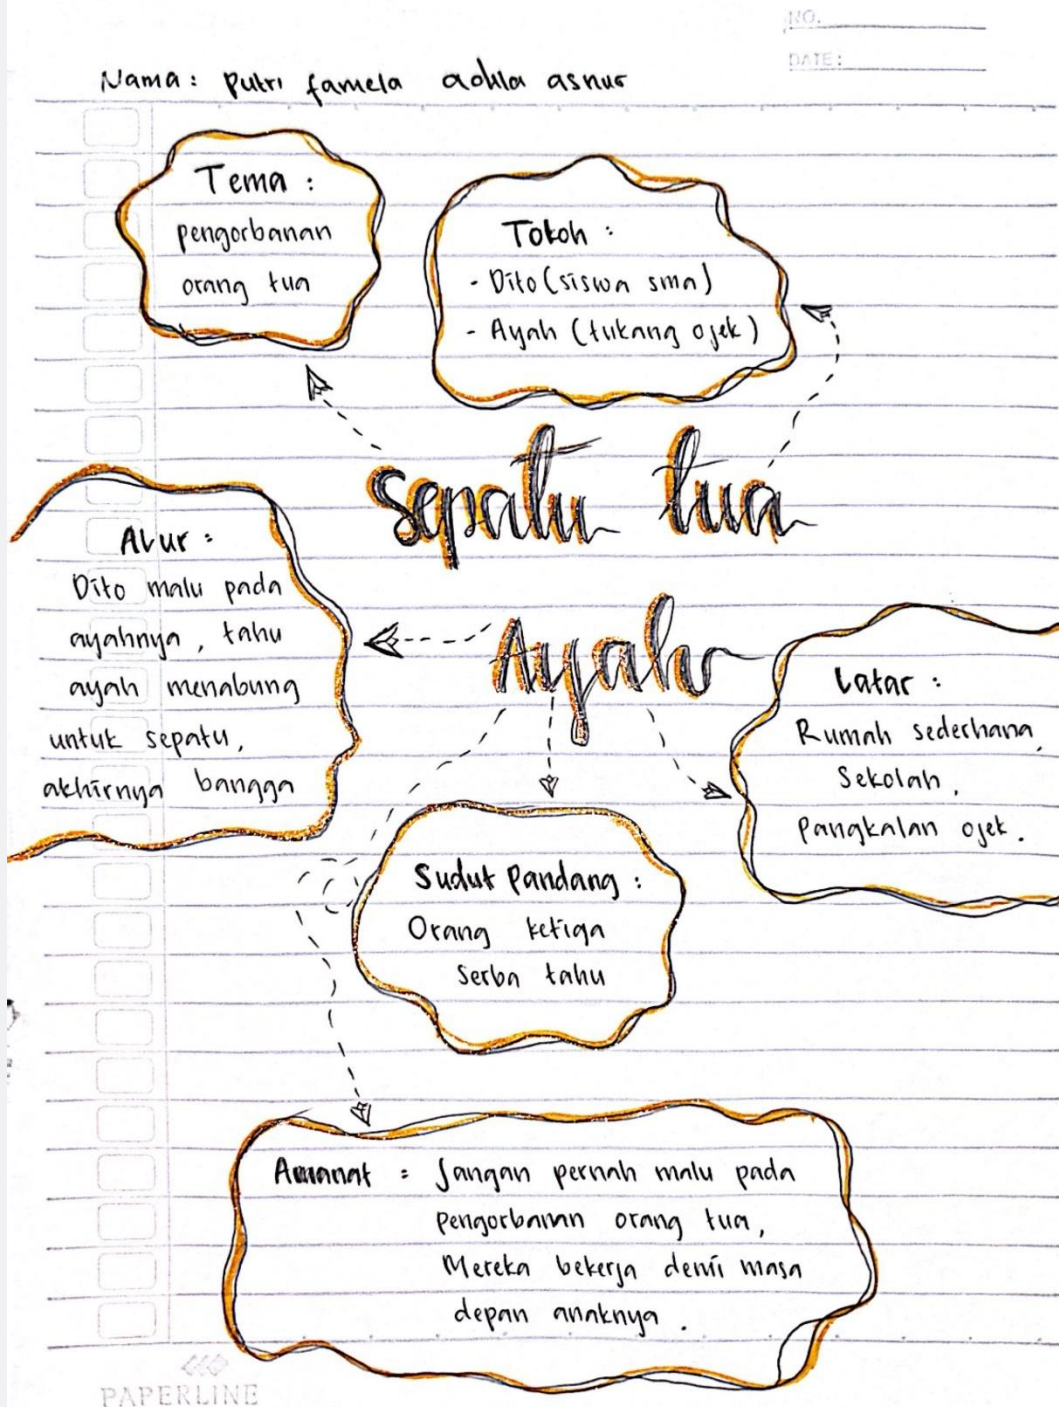 NO.
DATE:
Nama: Putri famela adhla asnur
Tema :
pengorbanan
orang tua
Tokoh :
- Dito (siswa sma)
- Ayah (tukang ojek)
Sepatu tua
Ayah
Alur :
Dito malu pada
ayahnya, tahu
ayah menabung
untuk sepatu,
akhirnya bangga
Latar :
Rumah sederhana,
Sekolah,
Pangkalan ojek.
Sudut Pandang :
Orang ketiga
Serba tahu
Amanat : Jangan pernah malu pada
pengorbanan orang tua,
Mereka bekerja demi masa
depan anaknya.
PAPERLINE